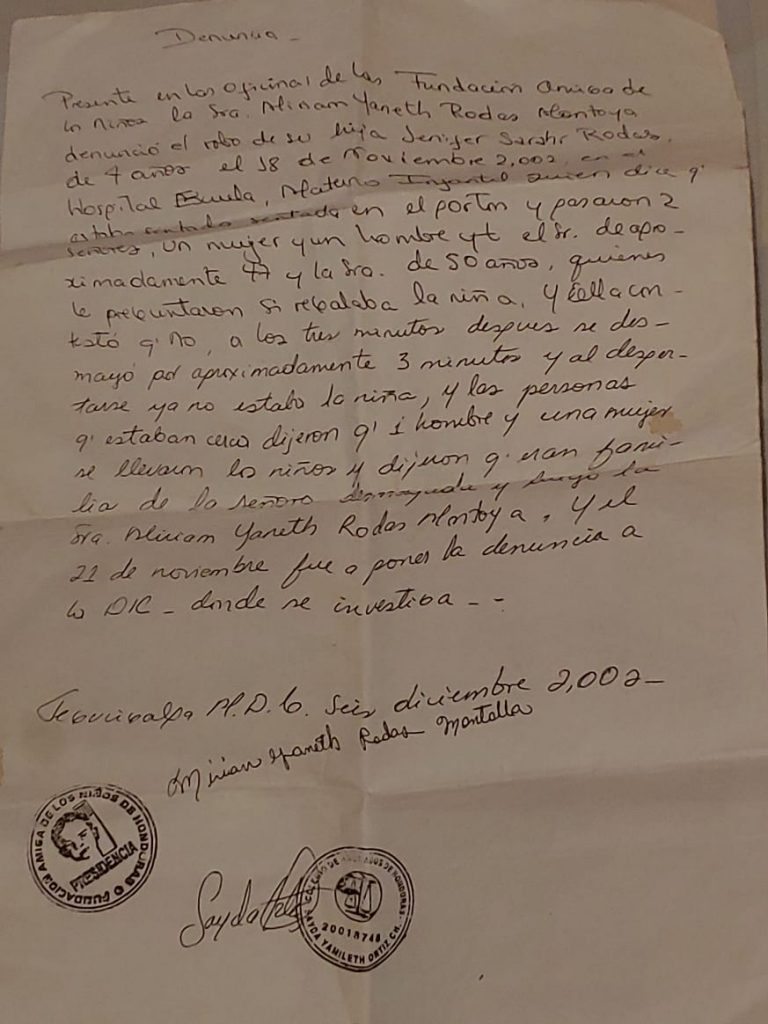 Denuncia -
Presente en las oficinas de la Fundación amiga de
los niños la Sra. Miriam Yaneth Rodas Montoya
denunció el robo de su hija Jenifer Sarahi Rodas,
de 4 años el 18 de Noviembre 2,002, en el
Hospital Escuela, Materno Infantil quien dice q'
estaba sentada en el portón y pasaron 2
señores, un mujer y un hombre el Sr. de apro-
ximadamente y la Sra. de 50 años, quienes
le preguntaron si regalaba la niña, y ella con-
testó q' no, a los tres minutos despues se des-
mayó por aproximadamente 3 minutos y al desper-
tarse ya no estaba la niña, y las personas
q' estaban cerca dijeron q' 1 hombre y una mujer
se llevaron los niños y dijeron q eran fami-
lia de la señora desmayada y luego la
Sra. Miriam Yaneth Rodas Montoya, y el
21 de noviembre fue a poner la denuncia a
la DIC - donde se investiga - -
Tegucigalpa M.D.C. Seis diciembre 2,002-
Mirian Yaneth Rodas Montalla
FUNDACION AMIGA DE LOS NIÑOS DE HONDURAS
PRESIDENCIA
Sayda
COLEGIO DE ABOGADOS DE HONDURAS
20018748
SAYDA YAMILETH ORTIZ CH.